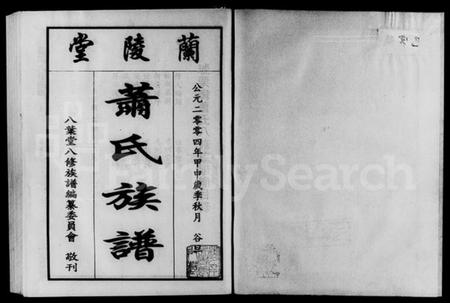 蘭陵堂
公元二零零四年甲申歲季秋月 谷旦
蕭氏族譜
八葉堂八修族譜編纂委員會 敬刊
FamilySearch